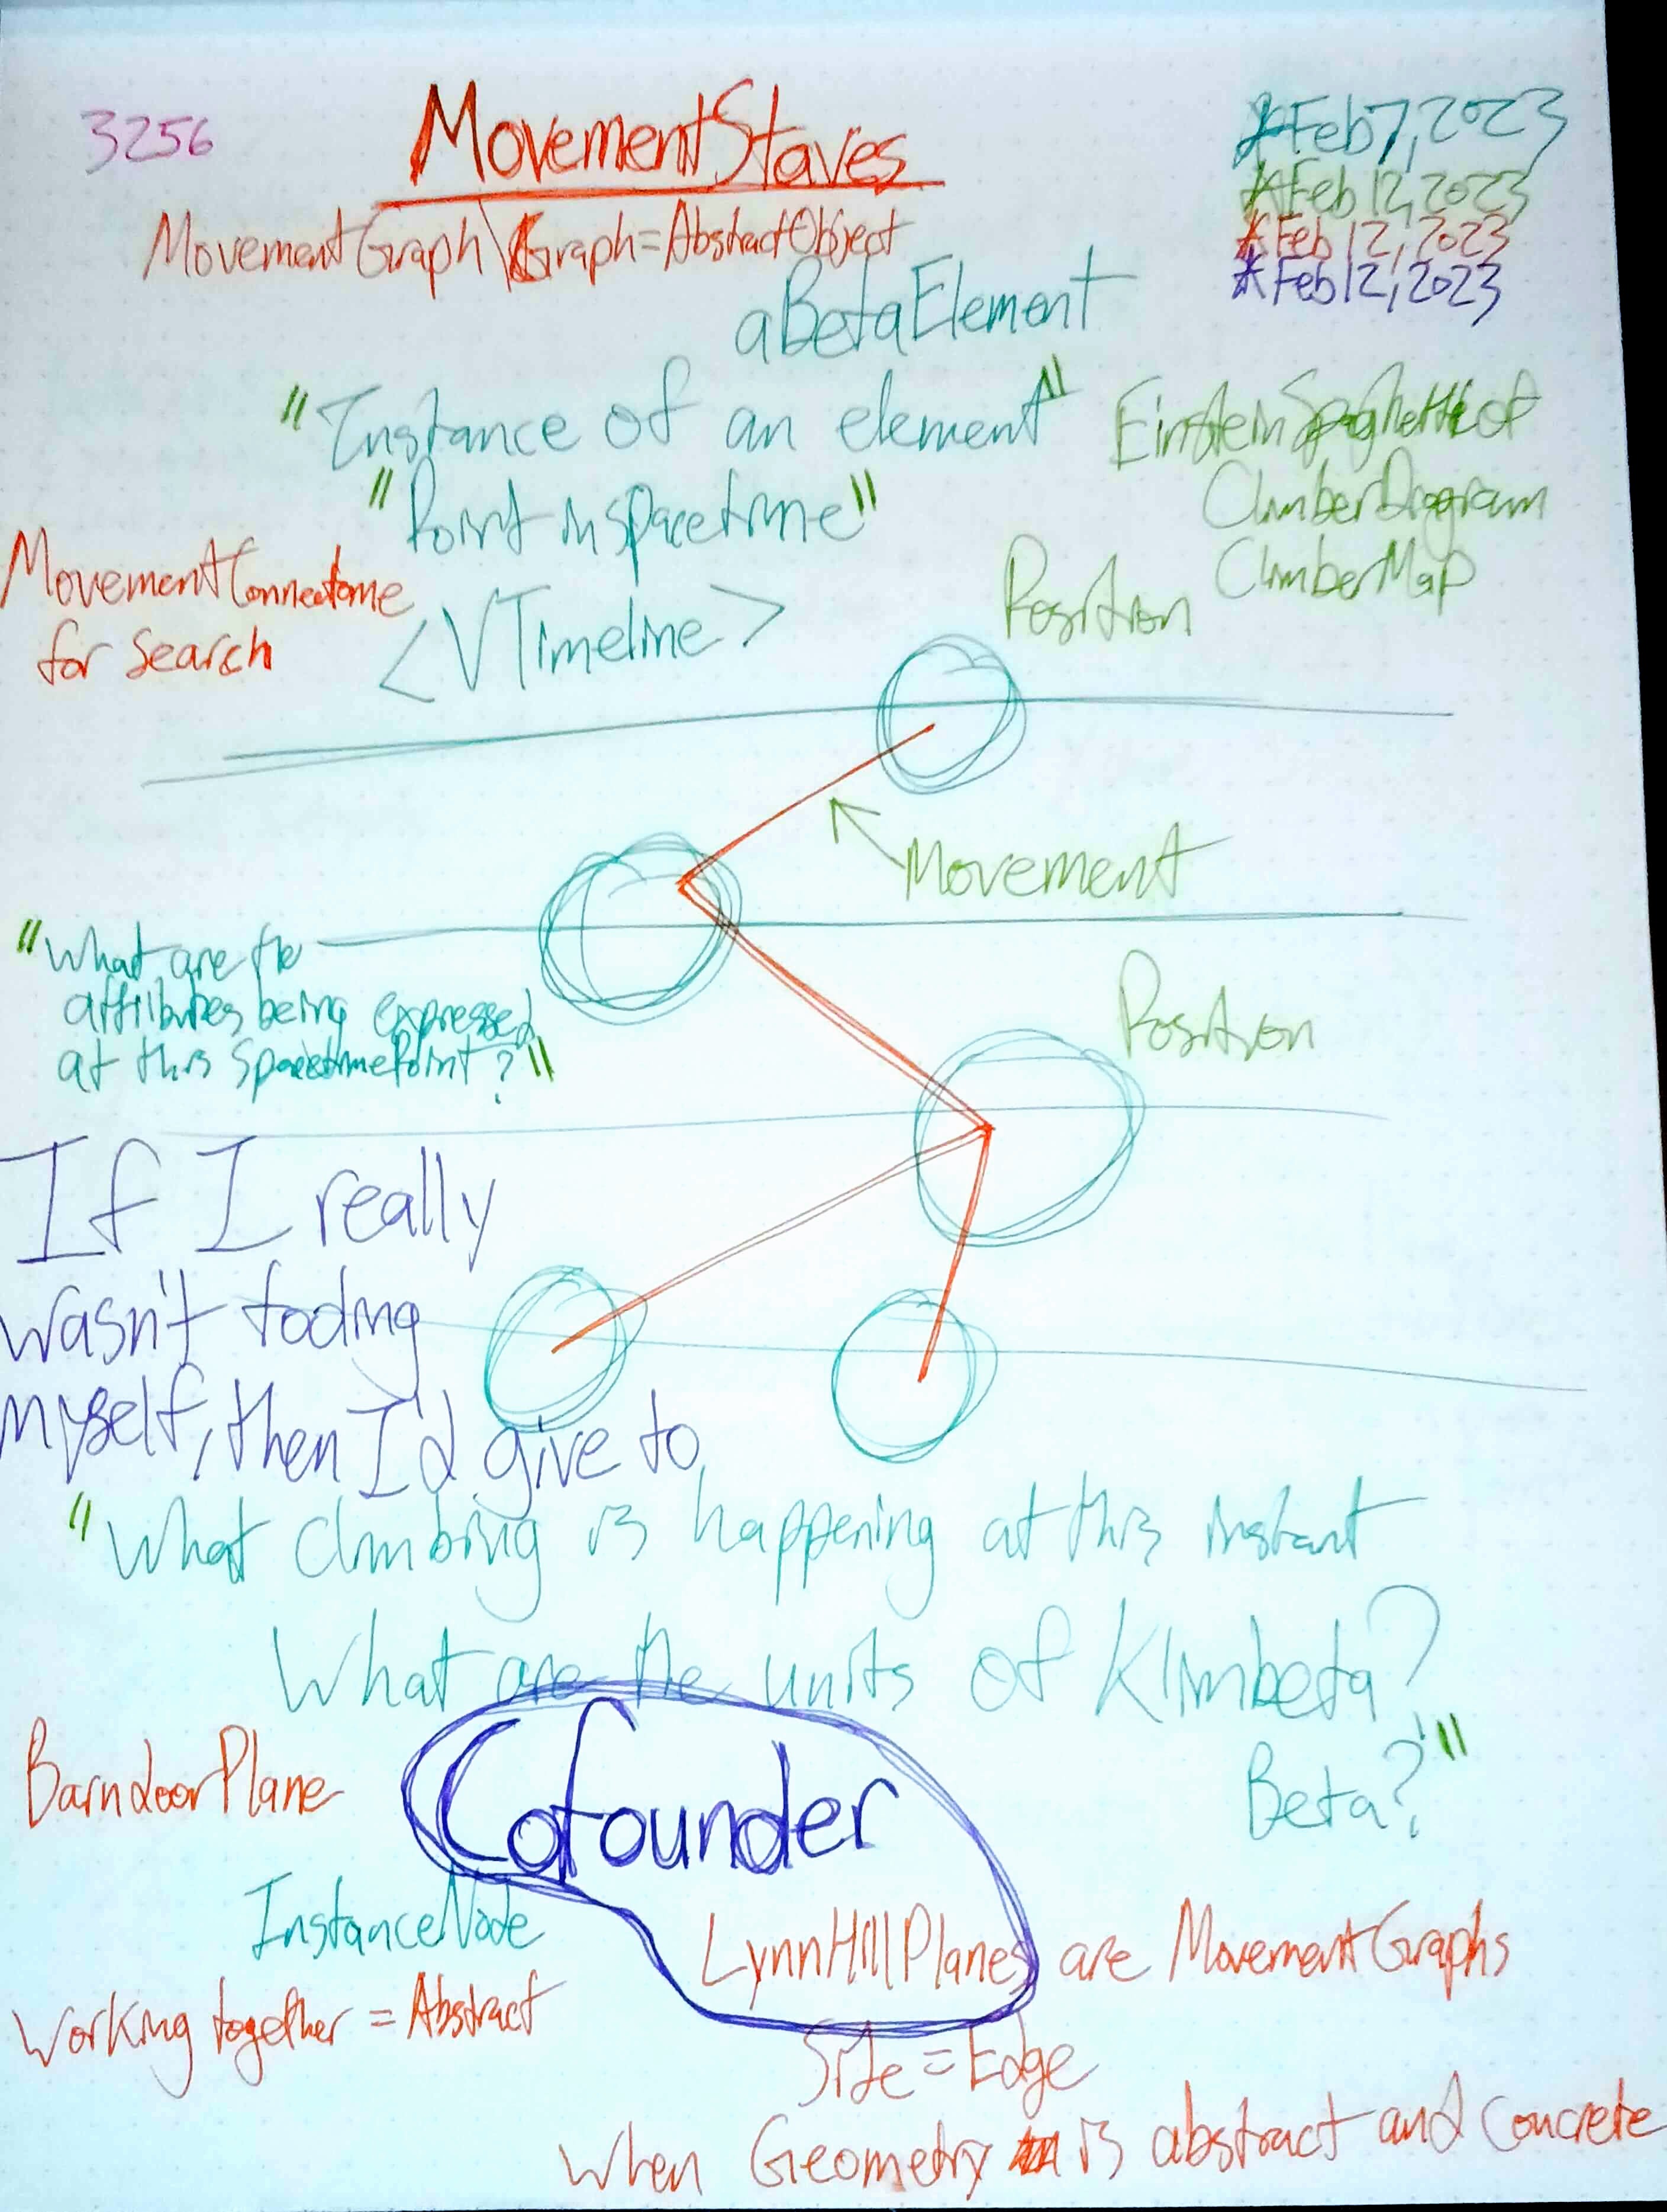 3256
MovementStaves
*Feb 7, 2023
*Feb 12, 2023
*Feb 12, 2023
*Feb 12, 2023
MovementGraph\Graph=AbstractObject
aBetaElement
"Instance of an element"
"Point in spacetime"
EinsteinSpaghetti of
ClimberDiagram
ClimberMap
MovementConnectome
for search
<VTimeline>
Position
Movement
"What are the
attributes being expressed
at this SpacetimePoint?"
Position
If I really
wasn't
myself, then I'd give to
"What climbing is happening at this instant
What are the units of Klimbeta?
Beta?"
BarndoorPlane
Cofounder
InstanceNode
LynnHillPlanes are MovementGraphs
Working together = Abstract
Side = Edge
When Geometry is abstract and concrete